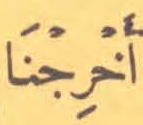 أَخْرِجْنَا